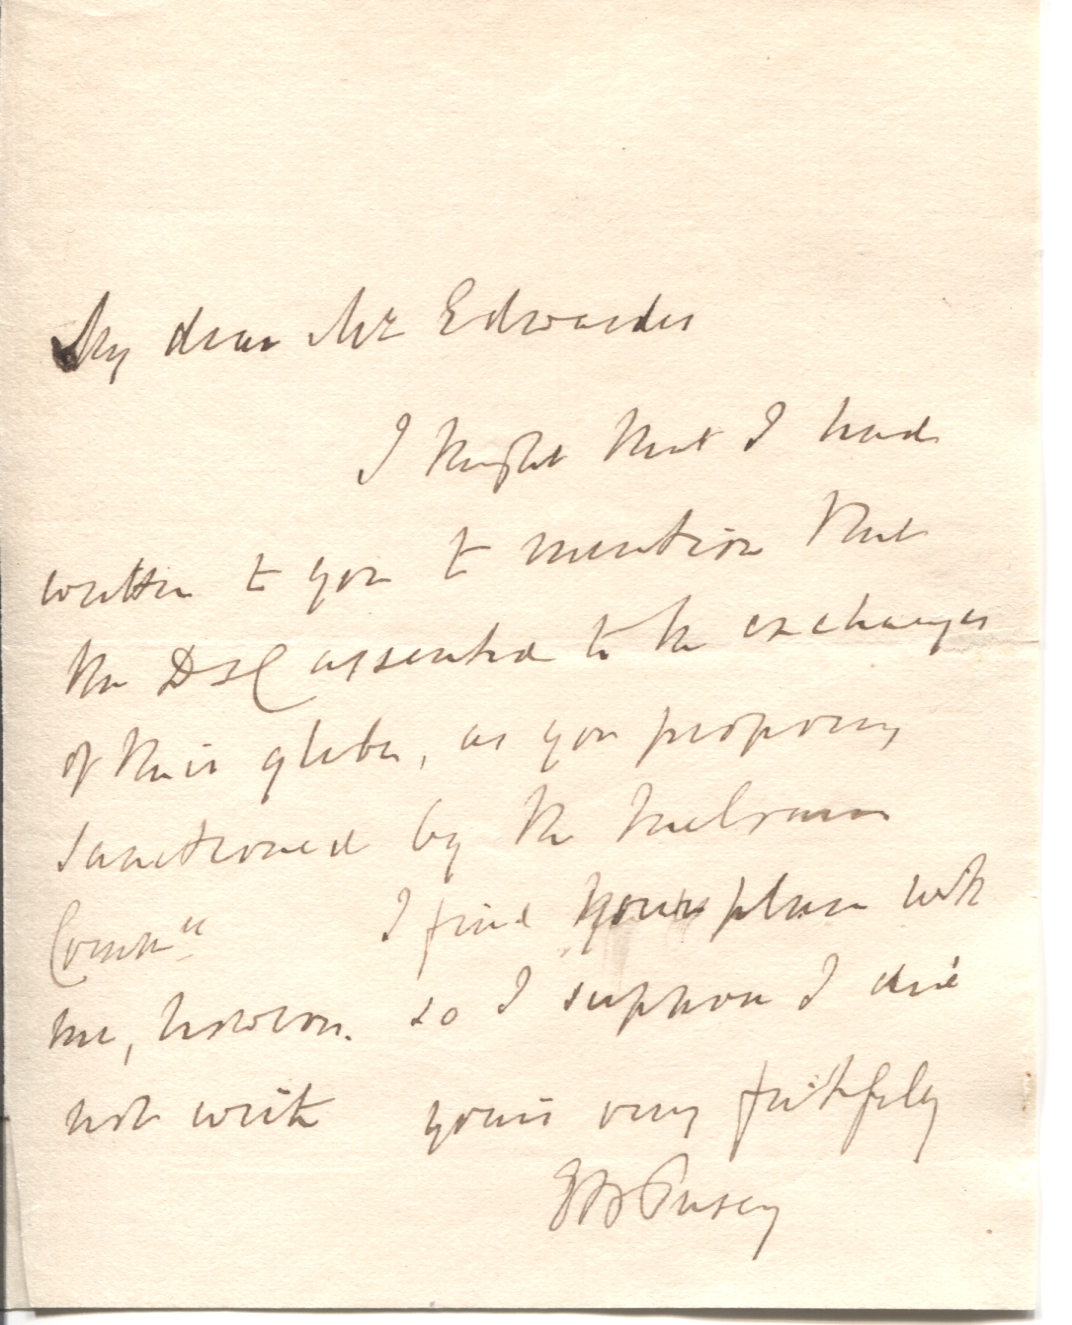 My dear Mr Edwardes
I thought that I had
written to you to mention that
the D & C assented to the exchanges
of their glebe, as you propose
sanctioned by the
Commrs I find your plan with
me, however. so I suppose I did
not write yours very faithfully
EB Pusey